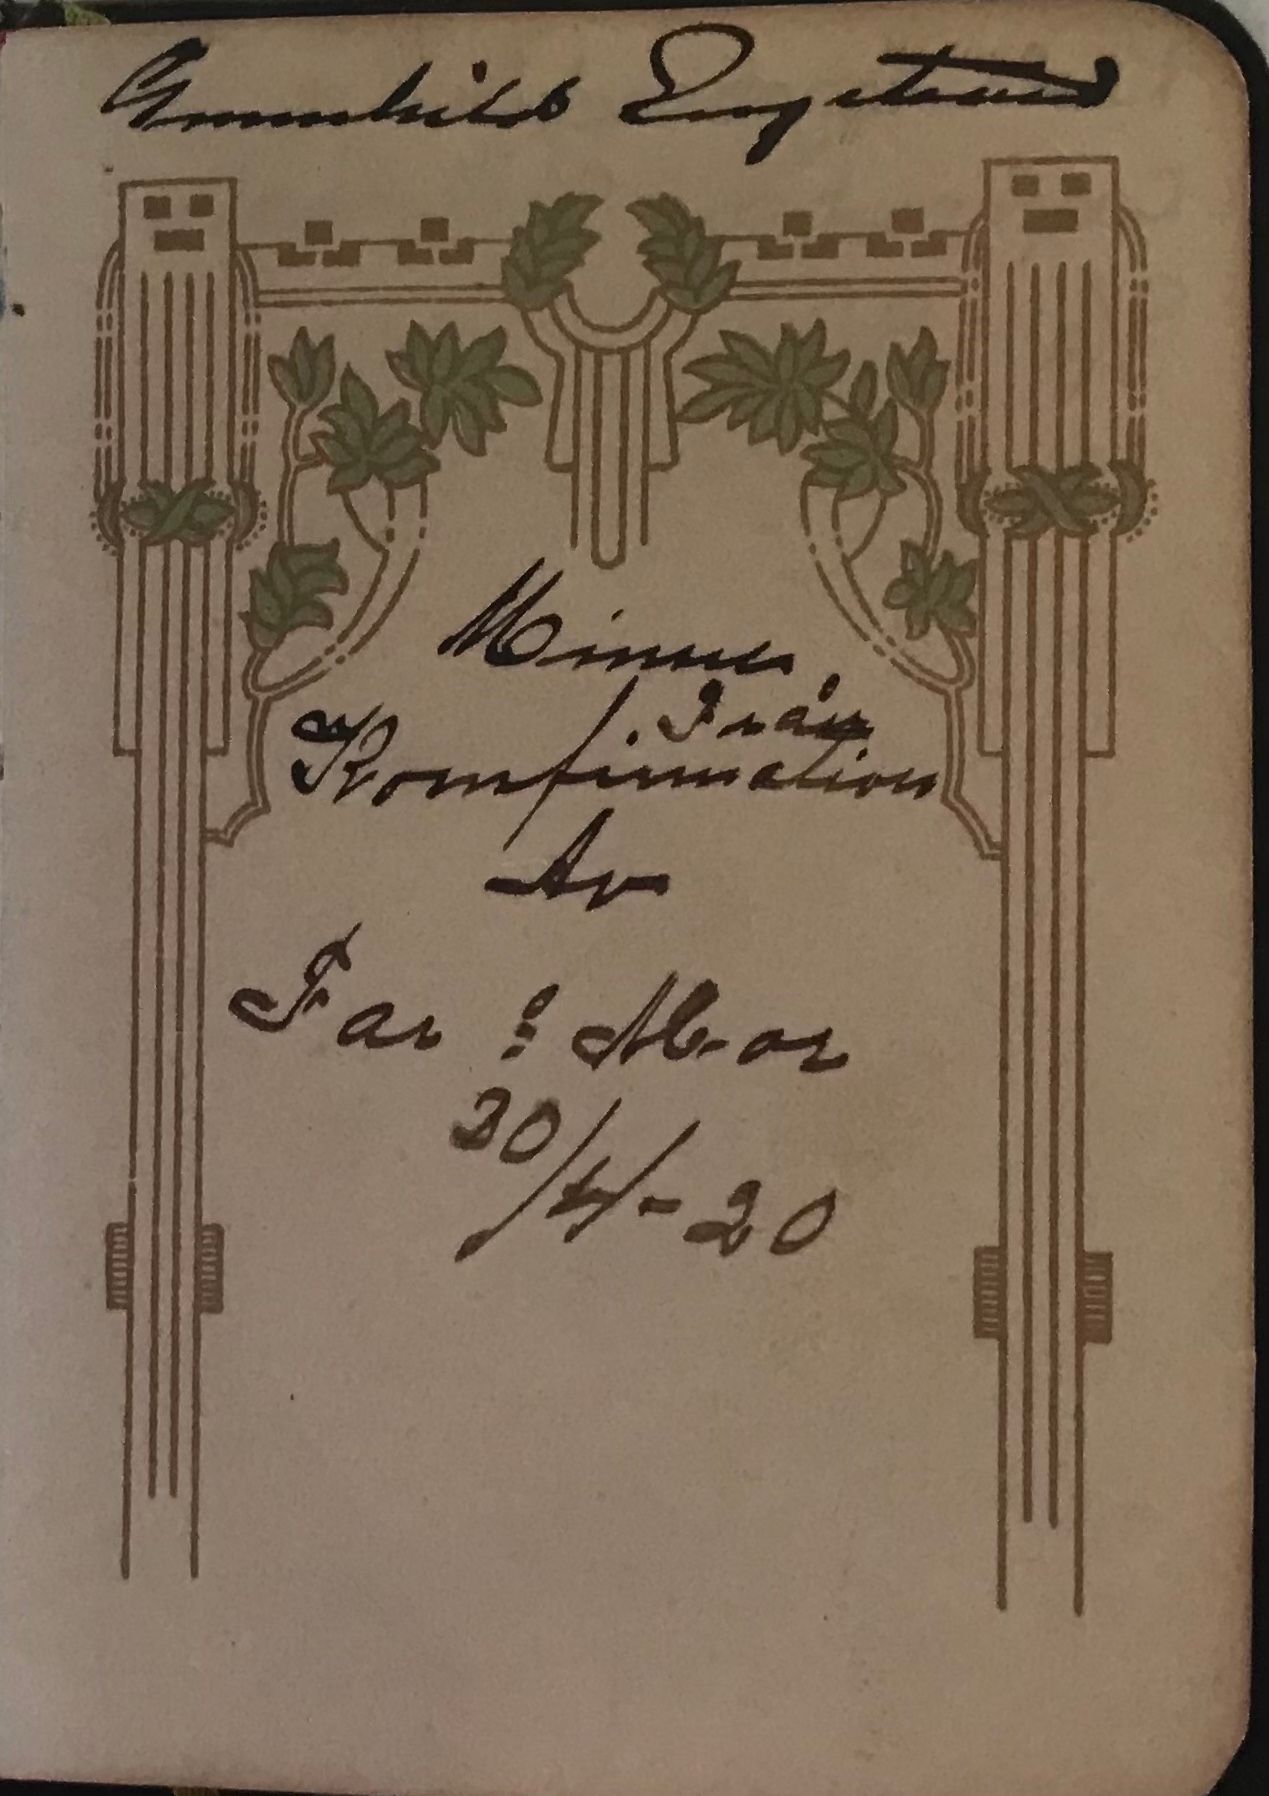 Gunnhild Engstrand
Minne
Från
Konfirmation
Av
Far : Mor
30/4-20